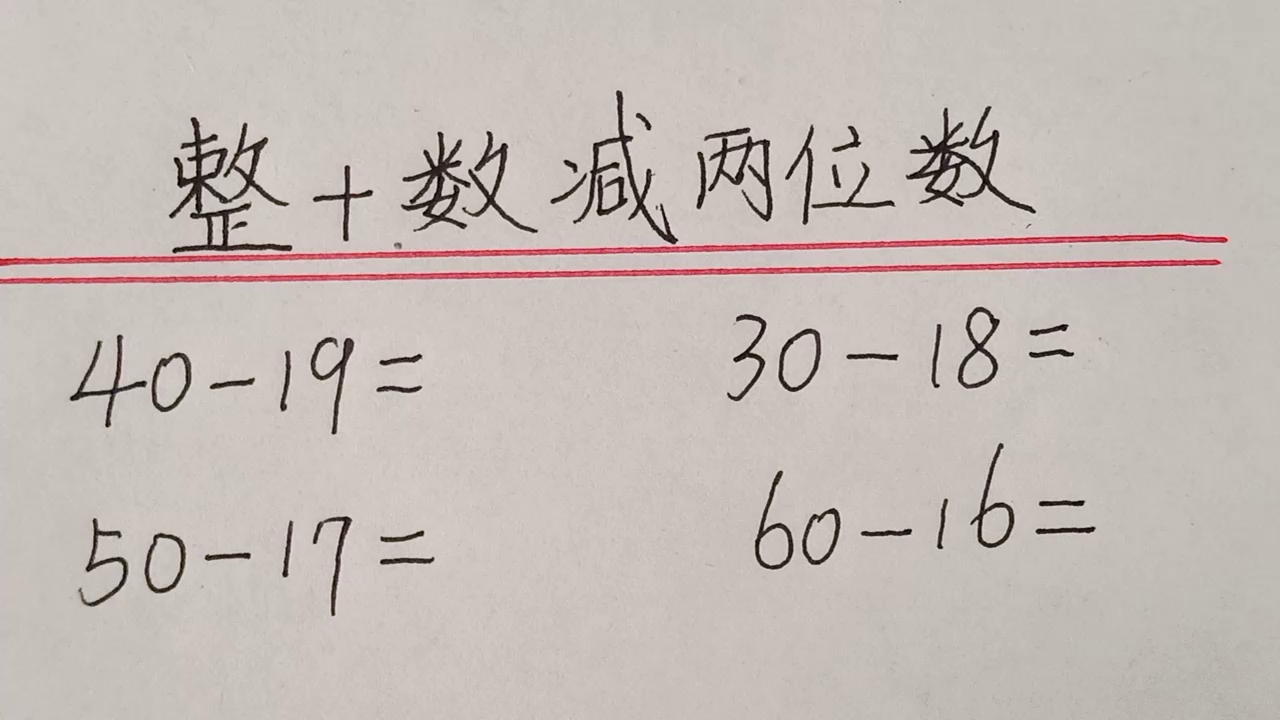 整十数减两位数
40-19= 30-18=
50-17= 60-16=